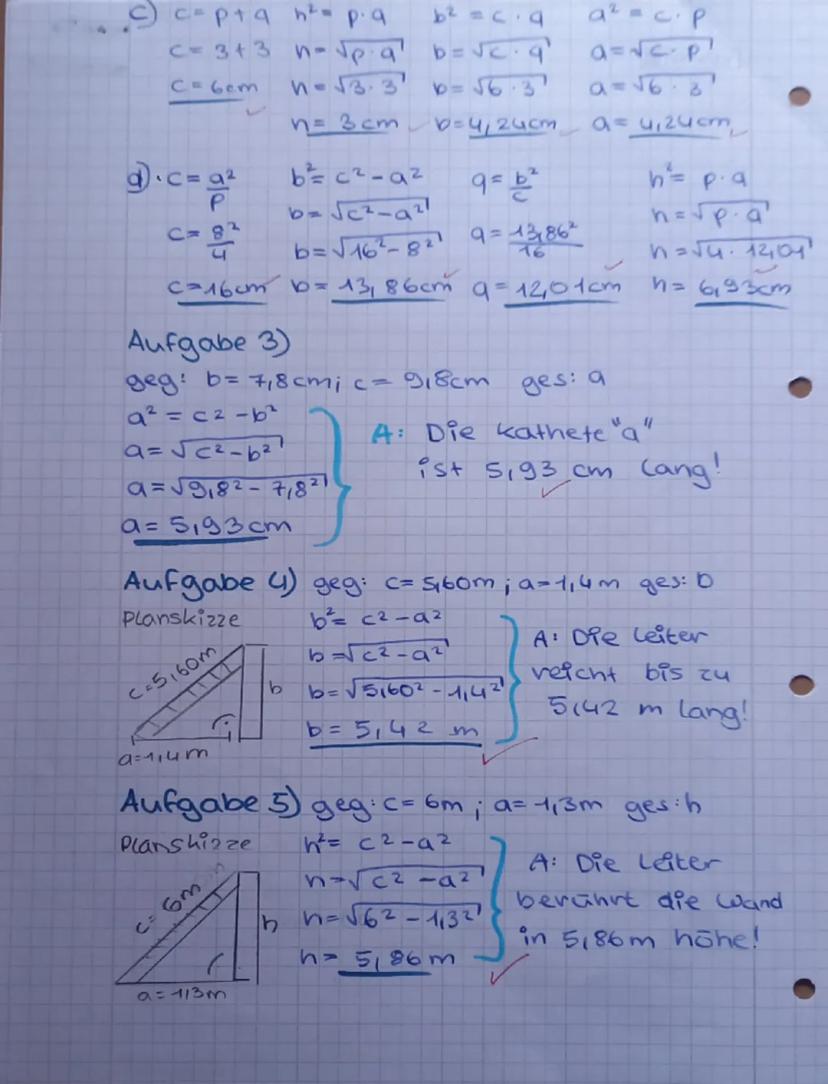 c) c = p + q h² = p · q b² = c · q a² = c · p
c = 3 + 3 h = √p · q b = √c · q a = √c · p
c = 6cm h = √3 · 3 b = √6 · 3 a = √6 · 3
h = 3cm b = 4,24cm a = 4,24cm
d) · c = a²/p b² = c² - a² q = b²/c h² = p · q
b = √c² - a² h = √p · q
c = 8²/4 b = √16² - 8² q = 13,86²/16 h = √4 · 12,01
c = 16cm b = 13,86cm q = 12,01cm h = 6,93cm
Aufgabe 3)
geg: b = 7,8cm; c = 9,8cm ges: a
a² = c² - b²
a = √c² - b²
a = √9,8² - 7,8²
a = 5,93cm
A: Die Kathete "a"
ist 5,93 cm lang!
Aufgabe 4) geg: c = 5,60m; a = 1,4m ges: b
Planskizze
c = 5,60m
b
a = 1,4m
b² = c² - a²
b = √c² - a²
b = √5,60² - 1,4²
b = 5,42 m
A: Die Leiter
reicht bis zu
5,42 m lang!
Aufgabe 5) geg: c = 6m; a = 1,3m ges: h
Planskizze
c = 6m
h
a = 1,3m
h² = c² - a²
h = √c² - a²
h = √6² - 1,3²
h = 5,86m
A: Die Leiter
berührt die Wand
in 5,86m höhe!